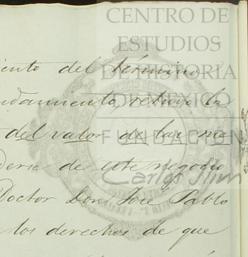 CENTRO DE
ESTUDIOS
DE HISTORIA
DE MÉXICO
FUNDACIÓN
Carlos Slim
iento del término
udamiento, retuvo la
del valor de las ma
deria de este negocio
Doctor Don José Pablo
los derechos de que